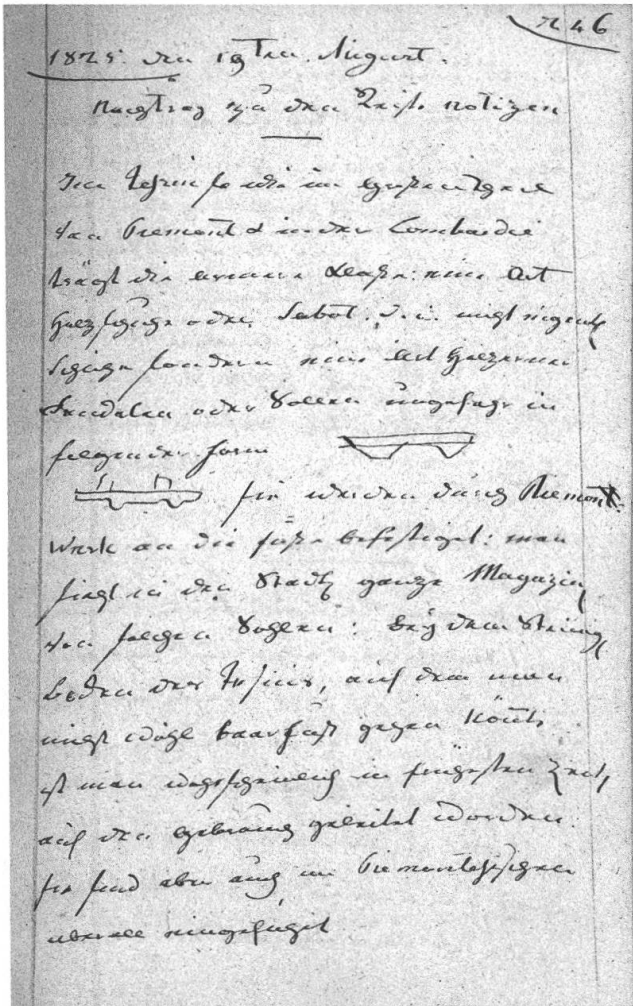 246
1825. den 19ten August.
Nachtrag zu den Reise notizen
Im Tessin so wie im grösten theil
von Piemont & in der Lombardie
trägt die ärmere Classe eine Art
Holzschuhe oder Sabot. d. i. nicht eigentl.
Schuhe sondern eine Art Hölzerner
Sandalen oder Solen ungefahr in
folgender form
sie werden durch Riemen
Werk an die füsse befestiget: man
sieht in den Stadt ganze Magazin
von solchen Sohlen: bey dem Steinig
boden des Tessins, auf dem man
nicht wohl baarfuss gehen könte,
ist man wahrscheinlich in frühesten Zeit,
auf den gebrauch geleitet worden.
sie sind aber auch im Piemontesischen
überall eingeführt